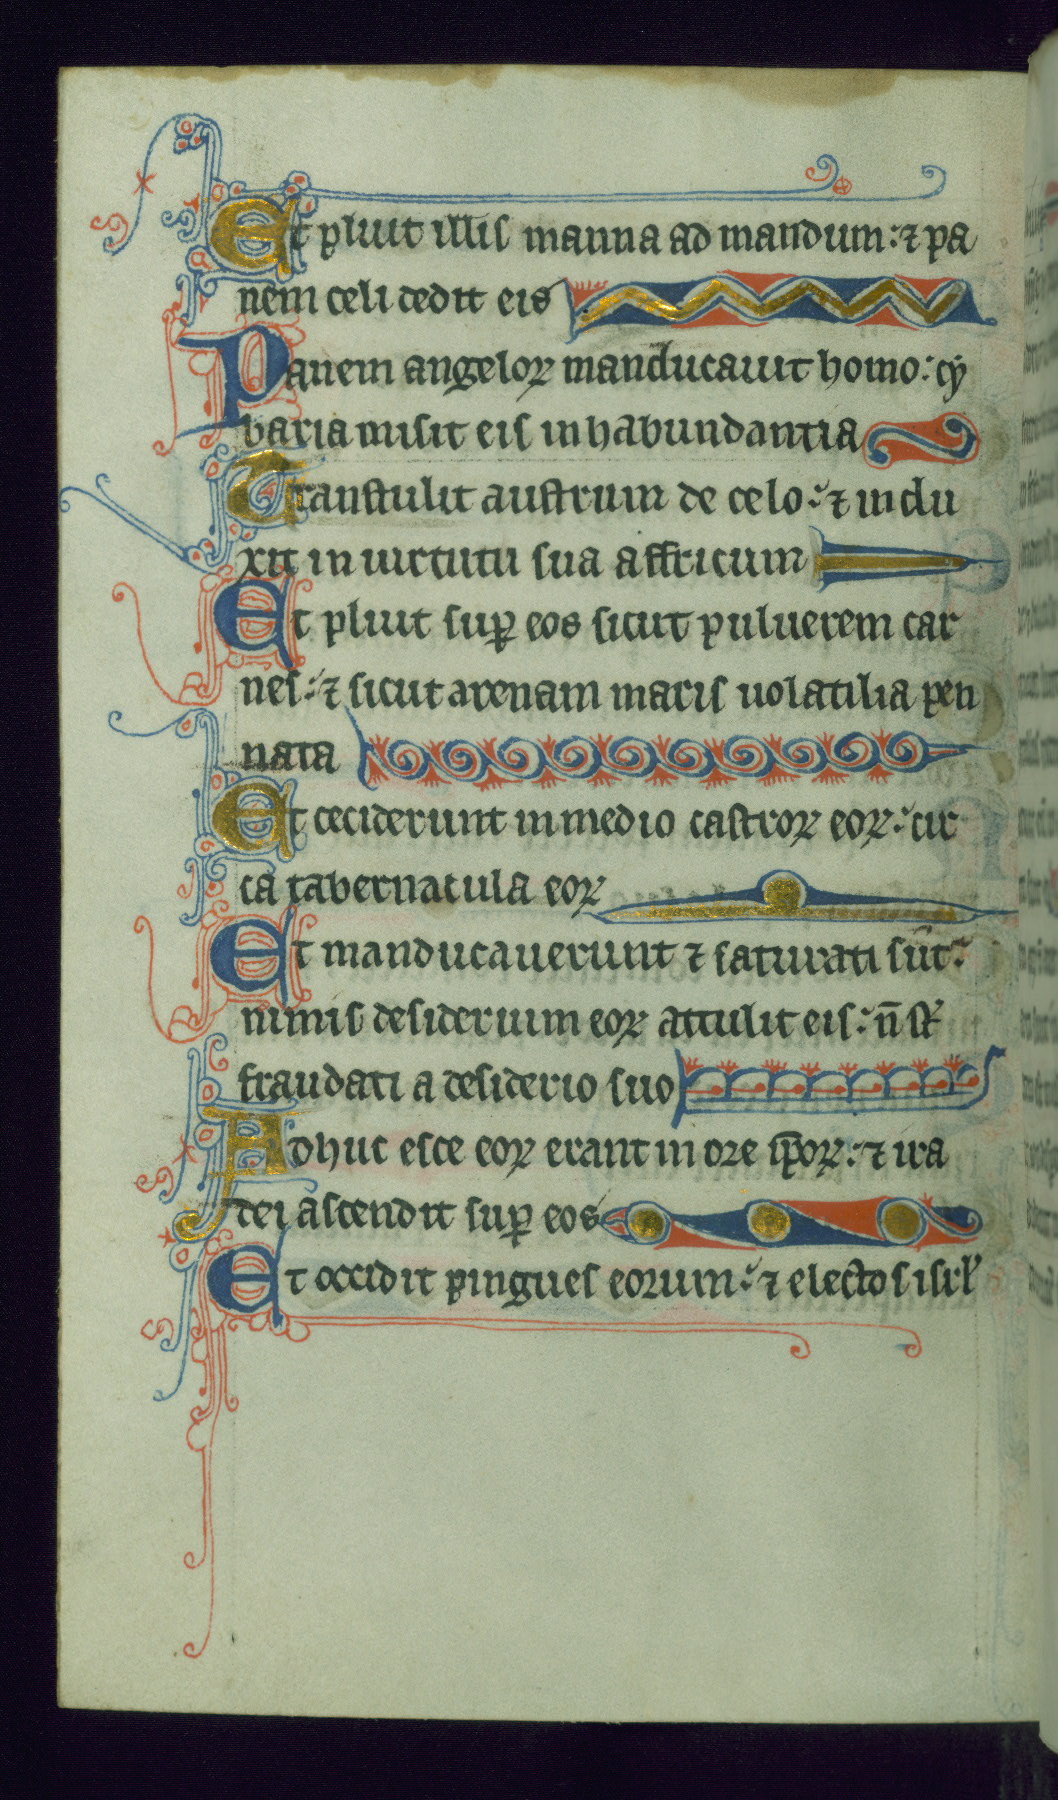 Et pluit illis manna ad mandum: ⁊ pa
nem celi dedit eis
Panem angeloꝝ manducauit homo: cy
baria misit eis in habundantia
Transtulit austrum de celo: ⁊ indu
xit in uirtutu sua affricum
Et pluit suꝑ eos sicut puluerem car
nes: ⁊ sicut arenam maris uolatilia pen
nata
Et ceciderunt in medio castroꝝ eoꝝ: cir
ca tabernacula eoꝝ
Et manducauerunt ⁊ saturati sūt
nimis desiderium eoꝝ attulit eis: n̄ st̾
fraudati a desiderio suo
Adhuc esce eoꝝ erant in ore ip̄oꝝ: ⁊ ira
dei ascendit suꝑ eos
Et occidit pingues eorum: ⁊ electos isrl̾